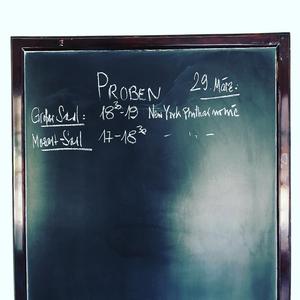 PROBEN 29. März:
Großer Saal: 18³⁰-19 New York Philharmonic
Mozart-Saal 17-18³⁰ - " -